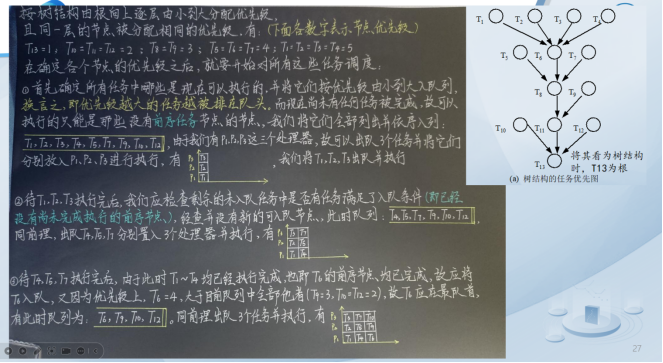 按树结构由根向上逐层由小到大分配优先级,
且同一层的节点被分配相同的优先级,有:(下面各数字表示节点优先级)
T13=1, T10=T11=T12=2; T8=T9=3; T5=T6=T7=4; T1=T2=T3=T4=5
在确定各个节点的优先级之后,就要开始对所有这些任务调度:
①首先确定所有任务中哪些是现在可以执行的,并将它们按优先级由小到大入队列,
换言之,即优先级越大的任务越被排在队头,而现在尚未有任何任务被完成,故可以
执行的只能是那些没有前序任务节点的节点。我们将它们全部列出并依序入列:
T1, T2, T3, T4, T5, T7, T9, T10, T12,由于我们有P1,P2,P3这三个处理器,故可以出队3个任务并将它们
分别放入P1、P2、P3进行执行,有
P3 T3
P2 T2
P1 T1
,我们将T1,T2,T3出队并执行
②待T1,T2,T3执行完后,我们应检查剩余的未入队任务中是否有任务满足了入队条件(即已经
没有尚未完成执行的前序节点、),经查并没有新的可入队节点、此时队列:T4,T5,T7,T9,T10,T12,
同前理,出队T4,T5,T7分别置入3个处理器并执行,有
③待T4,T5,T7执行完后,由于此时T1~T4均已经执行完成,也即T6的前序节点、均已完成,故应将
T6入队,又因为优先级上,T6=4,大于目前队列中全部他者(T9=3,T10=T12=2),故T6应在最队首,
有此时队列为:T6, T9, T10, T12。同前理出队3个任务并执行,有
T1 T2 T3 T4
T5 T6 T7
T8 T9
T10 T11 T12
T13
将其看为树结构
时,T13为根
(a) 树结构的任务优先图
27